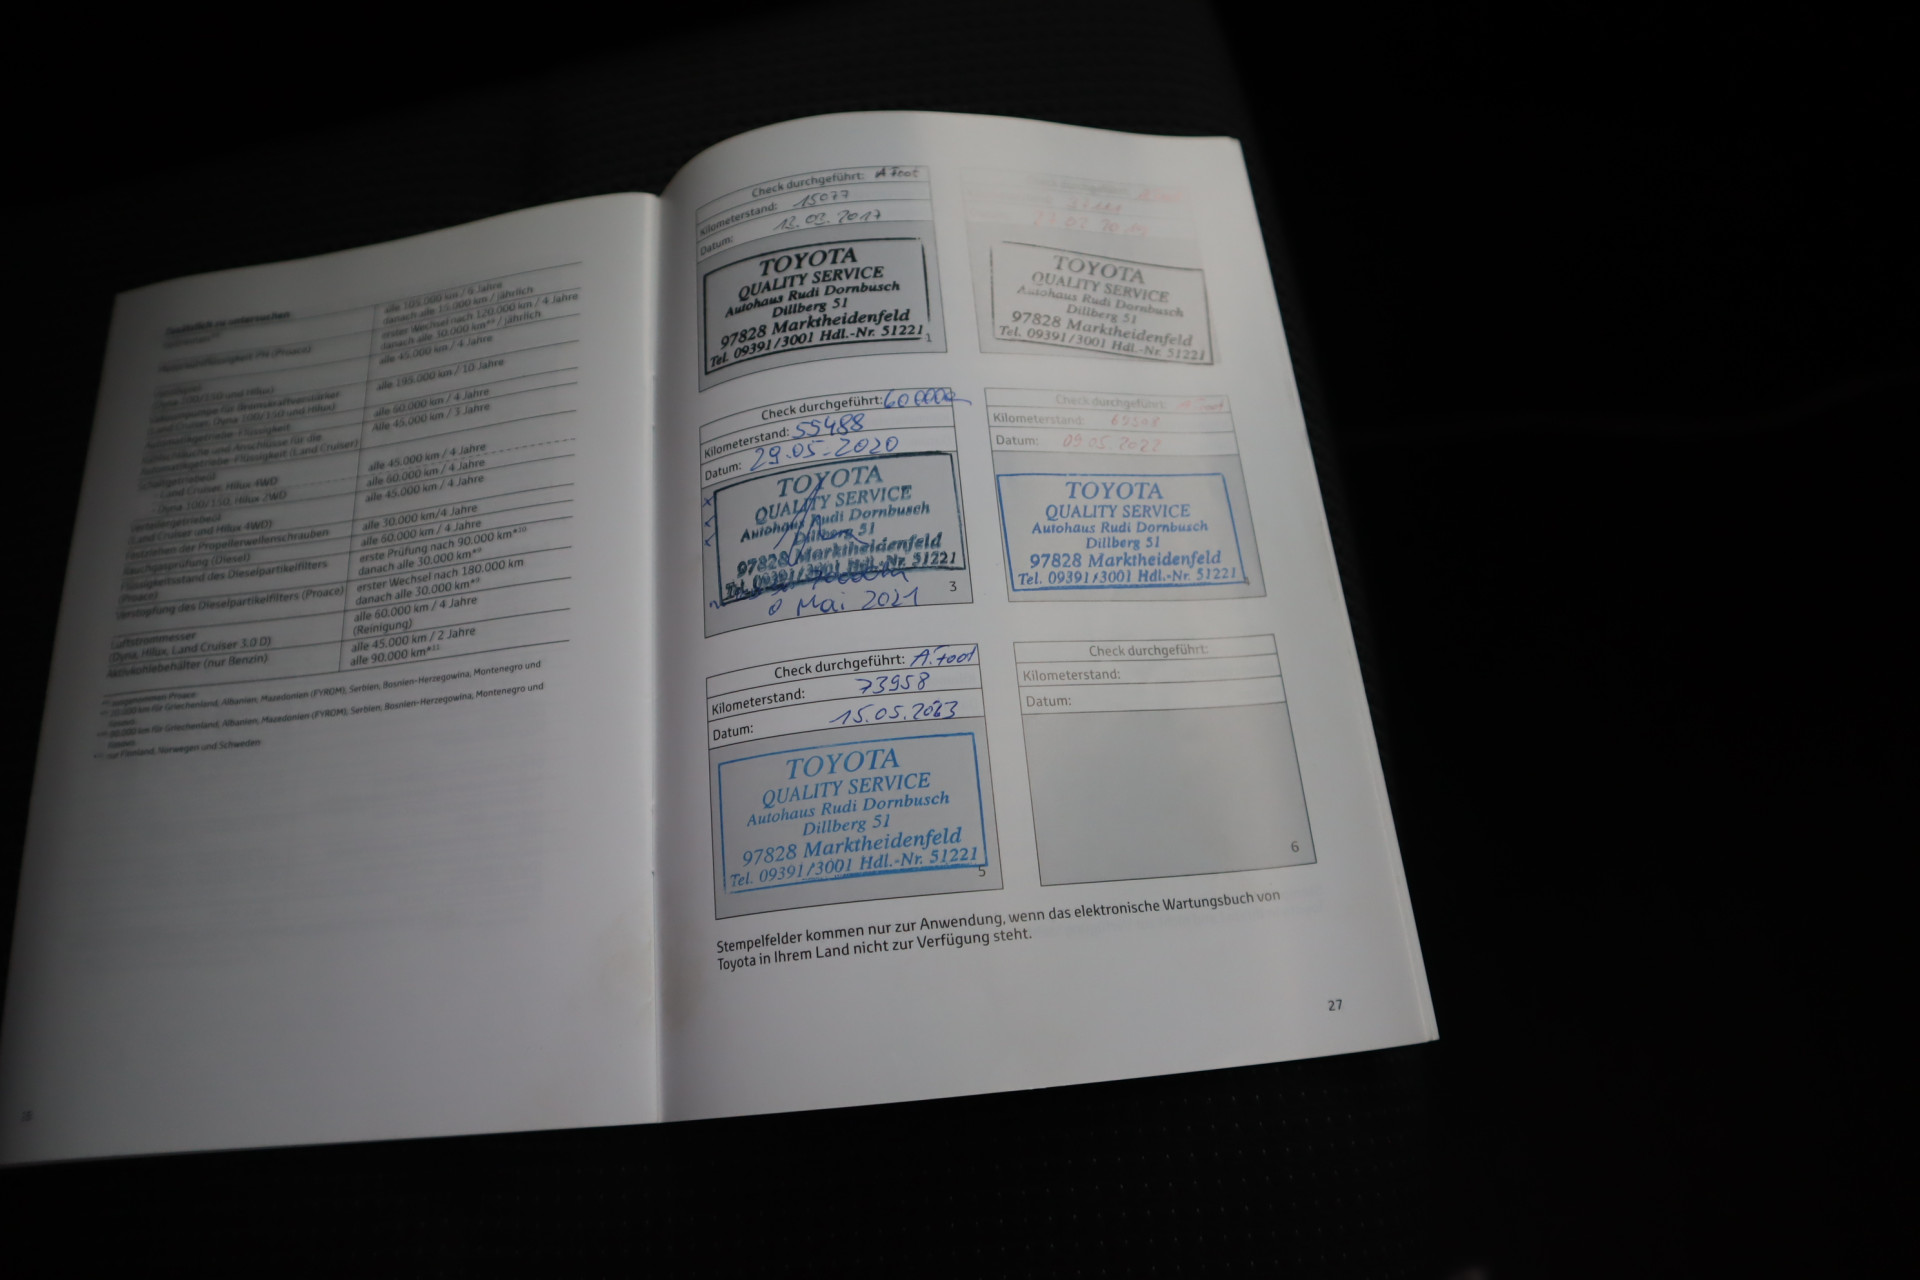 alle 105.000 km / 6 Jahre
danach alle 15.000 km / jährlich
erster Wechsel nach 120.000 km / 4 Jahre
danach alle 30.000 km / jährlich
alle 45.000 km / 4 Jahre
alle 195.000 km / 10 Jahre
Dyna 100/150 und Hilux)
alle 60.000 km / 4 Jahre
Alle 45.000 km / 3 Jahre
Automatikgetriebe-Flüssigkeit (Land Cruiser)
Schaltgetriebeöl
- Land Cruiser, Hilux 4WD
alle 45.000 km / 4 Jahre
- Dyna 100/150, Hilux 2WD
alle 60.000 km / 4 Jahre
alle 45.000 km / 4 Jahre
(Land Cruiser und Hilux 4WD)
Festziehen der Propellerwellenschrauben
alle 30.000 km/4 Jahre
Rauchgasprüfung (Diesel)
alle 60.000 km / 4 Jahre
Flüssigkeitsstand des Dieselpartikelfilters
(Proace)
erste Prüfung nach 90.000 km*10
danach alle 30.000 km*9
Verstopfung des Dieselpartikelfilters (Proace)
erster Wechsel nach 180.000 km
danach alle 30.000 km*9
Luftstrommesser
(Dyna, Hilux, Land Cruiser 3.0 D)
alle 60.000 km / 4 Jahre
(Reinigung)
Aktivkohlebehälter (nur Benzin)
alle 45.000 km / 2 Jahre
alle 90.000 km*11
ausgenommen Proace
20.000 km für Griechenland, Albanien, Mazedonien (FYROM), Serbien, Bosnien-Herzegowina, Montenegro und
Kosovo
60.000 km für Griechenland, Albanien, Mazedonien (FYROM), Serbien, Bosnien-Herzegowina, Montenegro und
Kosovo
nur Finnland, Norwegen und Schweden
Check durchgeführt: A Foot
Kilometerstand: 15077
Datum: 13.03.2017
TOYOTA
QUALITY SERVICE
Autohaus Rudi Dornbusch
Dillberg 51
97828 Marktheidenfeld
Tel. 09391/3001 Hdl.-Nr. 51221
1
TOYOTA
QUALITY SERVICE
Autohaus Rudi Dornbusch
Dillberg 51
97828 Marktheidenfeld
Tel. 09391/3001 Hdl.-Nr. 51221
Check durchgeführt: 60000
Kilometerstand: 55488
Datum: 29.05.2020
TOYOTA
QUALITY SERVICE
Autohaus Rudi Dornbusch
Dillberg 51
97828 Marktheidenfeld
Tel. 09391/3001 Hdl.-Nr. 51221
Mai 2021
3
Check durchgeführt: A Foot
Kilometerstand:
Datum: 09.05.2022
TOYOTA
QUALITY SERVICE
Autohaus Rudi Dornbusch
Dillberg 51
97828 Marktheidenfeld
Tel. 09391/3001 Hdl.-Nr. 51221
Check durchgeführt: A. Foot
Kilometerstand: 73958
Datum: 15.05.2023
TOYOTA
QUALITY SERVICE
Autohaus Rudi Dornbusch
Dillberg 51
97828 Marktheidenfeld
Tel. 09391/3001 Hdl.-Nr. 51221
5
Check durchgeführt:
Kilometerstand:
Datum:
6
Stempelfelder kommen nur zur Anwendung, wenn das elektronische Wartungsbuch von
Toyota in Ihrem Land nicht zur Verfügung steht.
27